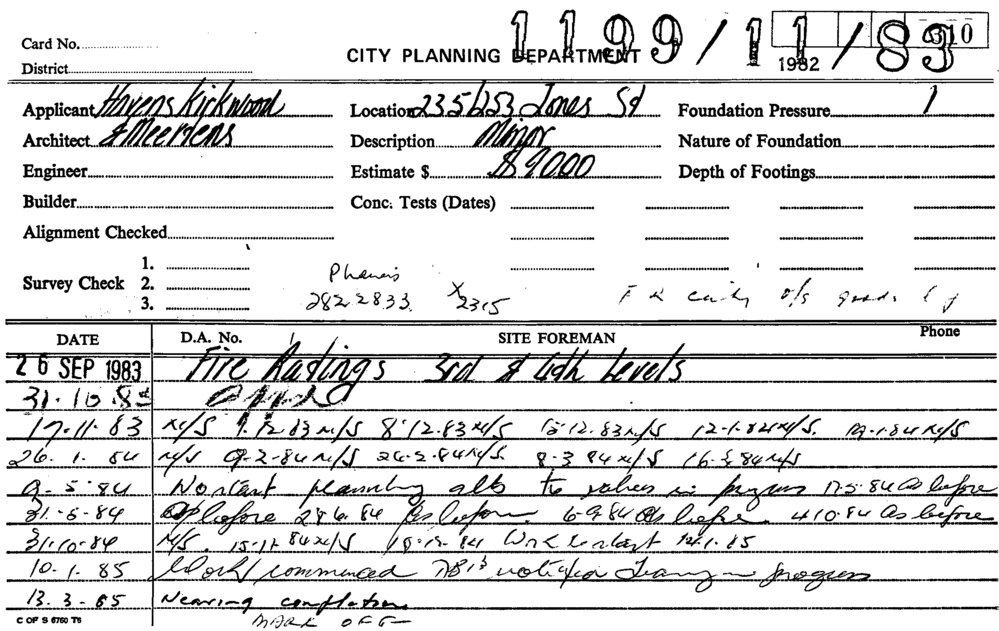 1199/11/83
310
Card No.
CITY PLANNING DEPARTMENT
1982
District
Applicant Havens Kirkwood Location 235/253 Jones St Foundation Pressure 1
Architect & Meertens Description Minor Nature of Foundation
Engineer Estimate $ $9000 Depth of Footings
Builder Conc. Tests (Dates)
Alignment Checked
1.
Survey Check 2.
3.
282 2833 X 2315
DATE D.A. No. SITE FOREMAN Phone
26 SEP 1983 Fire Ratings 3rd & 4th Levels
31.10.83
17.11.83 N/S 9.12.83 N/S 8.12.83 N/S 15.12.83 N/S 12.1.84 N/S. 19.1.84 N/S
26.1.84 N/S 9.2.84 N/S 24.2.84 N/S 8.3.84 N/S 16.3.84 N/S
9.5.84 No start planning in progress 17.5.84 As before
31.5.84 As before 28.6.84 As before. 6.9.84 As before. 4.10.84 As before
31.10.84 N/S. 15.11.84 N/S Work to start 14.1.85
10.1.85 Work commenced in progress
13.3.85 Nearing completion
C OF S 6760 T6 MARK OFF